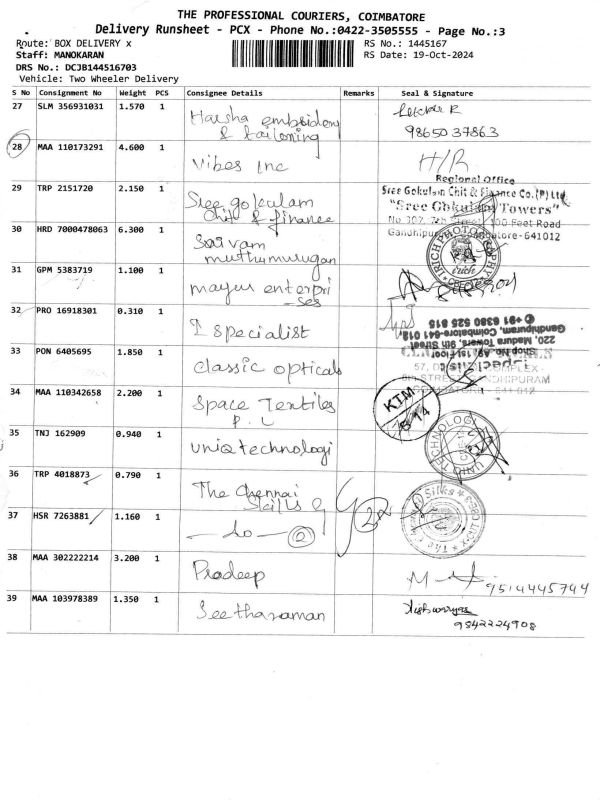 THE PROFESSIONAL COURIERS, COIMBATORE
Delivery Runsheet - PCX - Phone No.:0422-3505555 - Page No.:3
Route: BOX DELIVERY x
RS No.: 1445167
Staff: MANOKARAN
RS Date: 19-Oct-2024
DRS No.: DCJB144516703
Vehicle: Two Wheeler Delivery
S No Consignment No Weight PCS Consignee Details Remarks Seal & Signature
27 SLM 356931031 1.570 1 Harsha embroidery & tailoring
9865037863
28 MAA 110173291 4.600 1 Vibes Inc H/R
Regional Office
29 TRP 2151720 2.150 1 Sree gokulam Chit & finance
Sree Gokulam Chit & Finance Co.(P) Ltd
"Sree Gokulam Towers"
100 Feet Road
641012
30 HRD 7000478063 6.300 1 Saivam muthumurugan
31 GPM 5383719 1.100 1 mayur enterprises
32 PRO 16918301 0.310 1 I specialist
220, Madura Towers, 9th Street
Gandhipuram, Coimbatore-641 012
+91 6380 525 815
33 PON 6405695 1.850 1 Classic opticals
34 MAA 110342658 2.200 1 Space Textiles P.L
KTM
35 TNJ 162909 0.940 1 uniqtechnologi
36 TRP 4018873 0.790 1 The Chennai Silks
37 HSR 7263881 1.160 1 -do- 2
38 MAA 302222214 3.200 1 Pradeep 9514445744
39 MAA 103978389 1.350 1 Seetharaman
9842224908